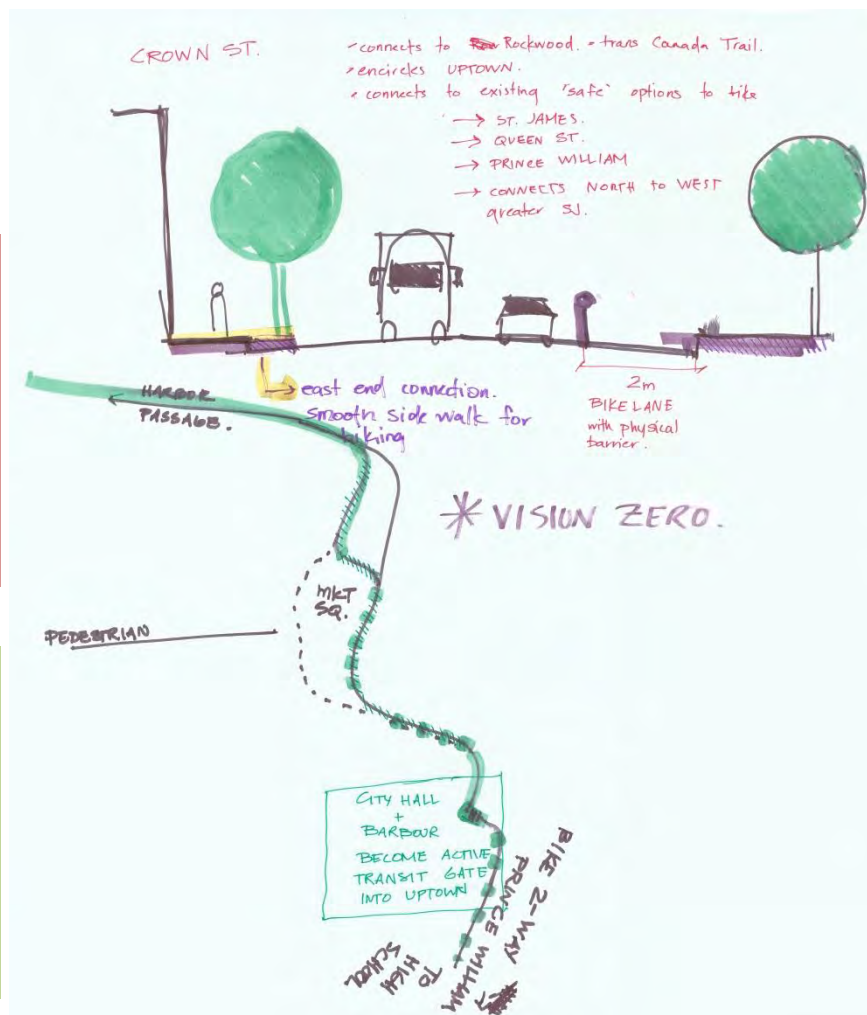 CROWN ST.
- connects to Rockwood. - trans Canada Trail.
• encircles UPTOWN.
• connects to existing 'safe' options to bike
→ ST. JAMES.
→ QUEEN ST.
→ PRINCE WILLIAM
→ CONNECTS NORTH to WEST
greater SJ.
2m
BIKE LANE
with physical
barrier.
→ east end connection.
smooth side walk for
biking
HARBOR
PASSAGE.
* VISION ZERO.
MKT
SQ.
PEDESTRIAN
CITY HALL
+
BARBOUR
BECOME ACTIVE
TRANSIT GATE
INTO UPTOWN
BIKE 2-WAY
PRINCE WILLIAM
TO
HIGH
SCHOOL